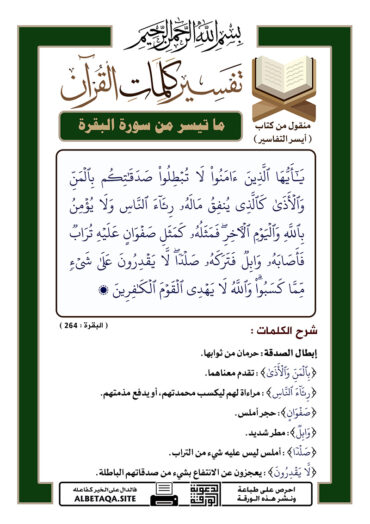 بِسْمِ اللَّهِ الرَّحْمَنِ الرَّحِيمِ
تفسير كلمات القرآن
ما تيسر من سورة البقرة
منقول من كتاب
( أيسر التفاسير )
يَـٰٓأَيُّهَا ٱلَّذِينَ ءَامَنُوا۟ لَا تُبْطِلُوا۟ صَدَقَـٰتِكُم بِٱلْمَنِّ
وَٱلْأَذَىٰ كَٱلَّذِى يُنفِقُ مَالَهُۥ رِئَآءَ ٱلنَّاسِ وَلَا يُؤْمِنُ
بِٱللَّهِ وَٱلْيَوْمِ ٱلْـَٔاخِرِ ۖ فَمَثَلُهُۥ كَمَثَلِ صَفْوَانٍ عَلَيْهِ تُرَابٌ
فَأَصَابَهُۥ وَابِلٌ فَتَرَكَهُۥ صَلْدًا ۖ لَّا يَقْدِرُونَ عَلَىٰ شَىْءٍ
مِّمَّا كَسَبُوا۟ ۗ وَٱللَّهُ لَا يَهْدِى ٱلْقَوْمَ ٱلْكَـٰفِرِينَ
( البقرة : 264 )
شرح الكلمات :
إبطال الصدقة : حرمان من ثوابها.
﴿بِٱلْمَنِّ وَٱلْأَذَىٰ﴾ : تقدم معناهما.
﴿رِئَآءَ ٱلنَّاسِ﴾ : مراءاة لهم ليكسب محمدتهم، أو يدفع مذمتهم.
﴿صَفْوَانٍ﴾ : حجر أملس.
﴿وَابِلٌ﴾ : مطر شديد.
﴿صَلْدًا﴾ : أملس ليس عليه شيء من التراب.
﴿لَّا يَقْدِرُونَ﴾ : يعجزون عن الانتفاع بشيء من صدقاتهم الباطلة.
احرص على طباعة
ونشر هذه الورقة
الورقة الدعوية
فالدال على الخير كفاعله
ALBETAQA.SITE